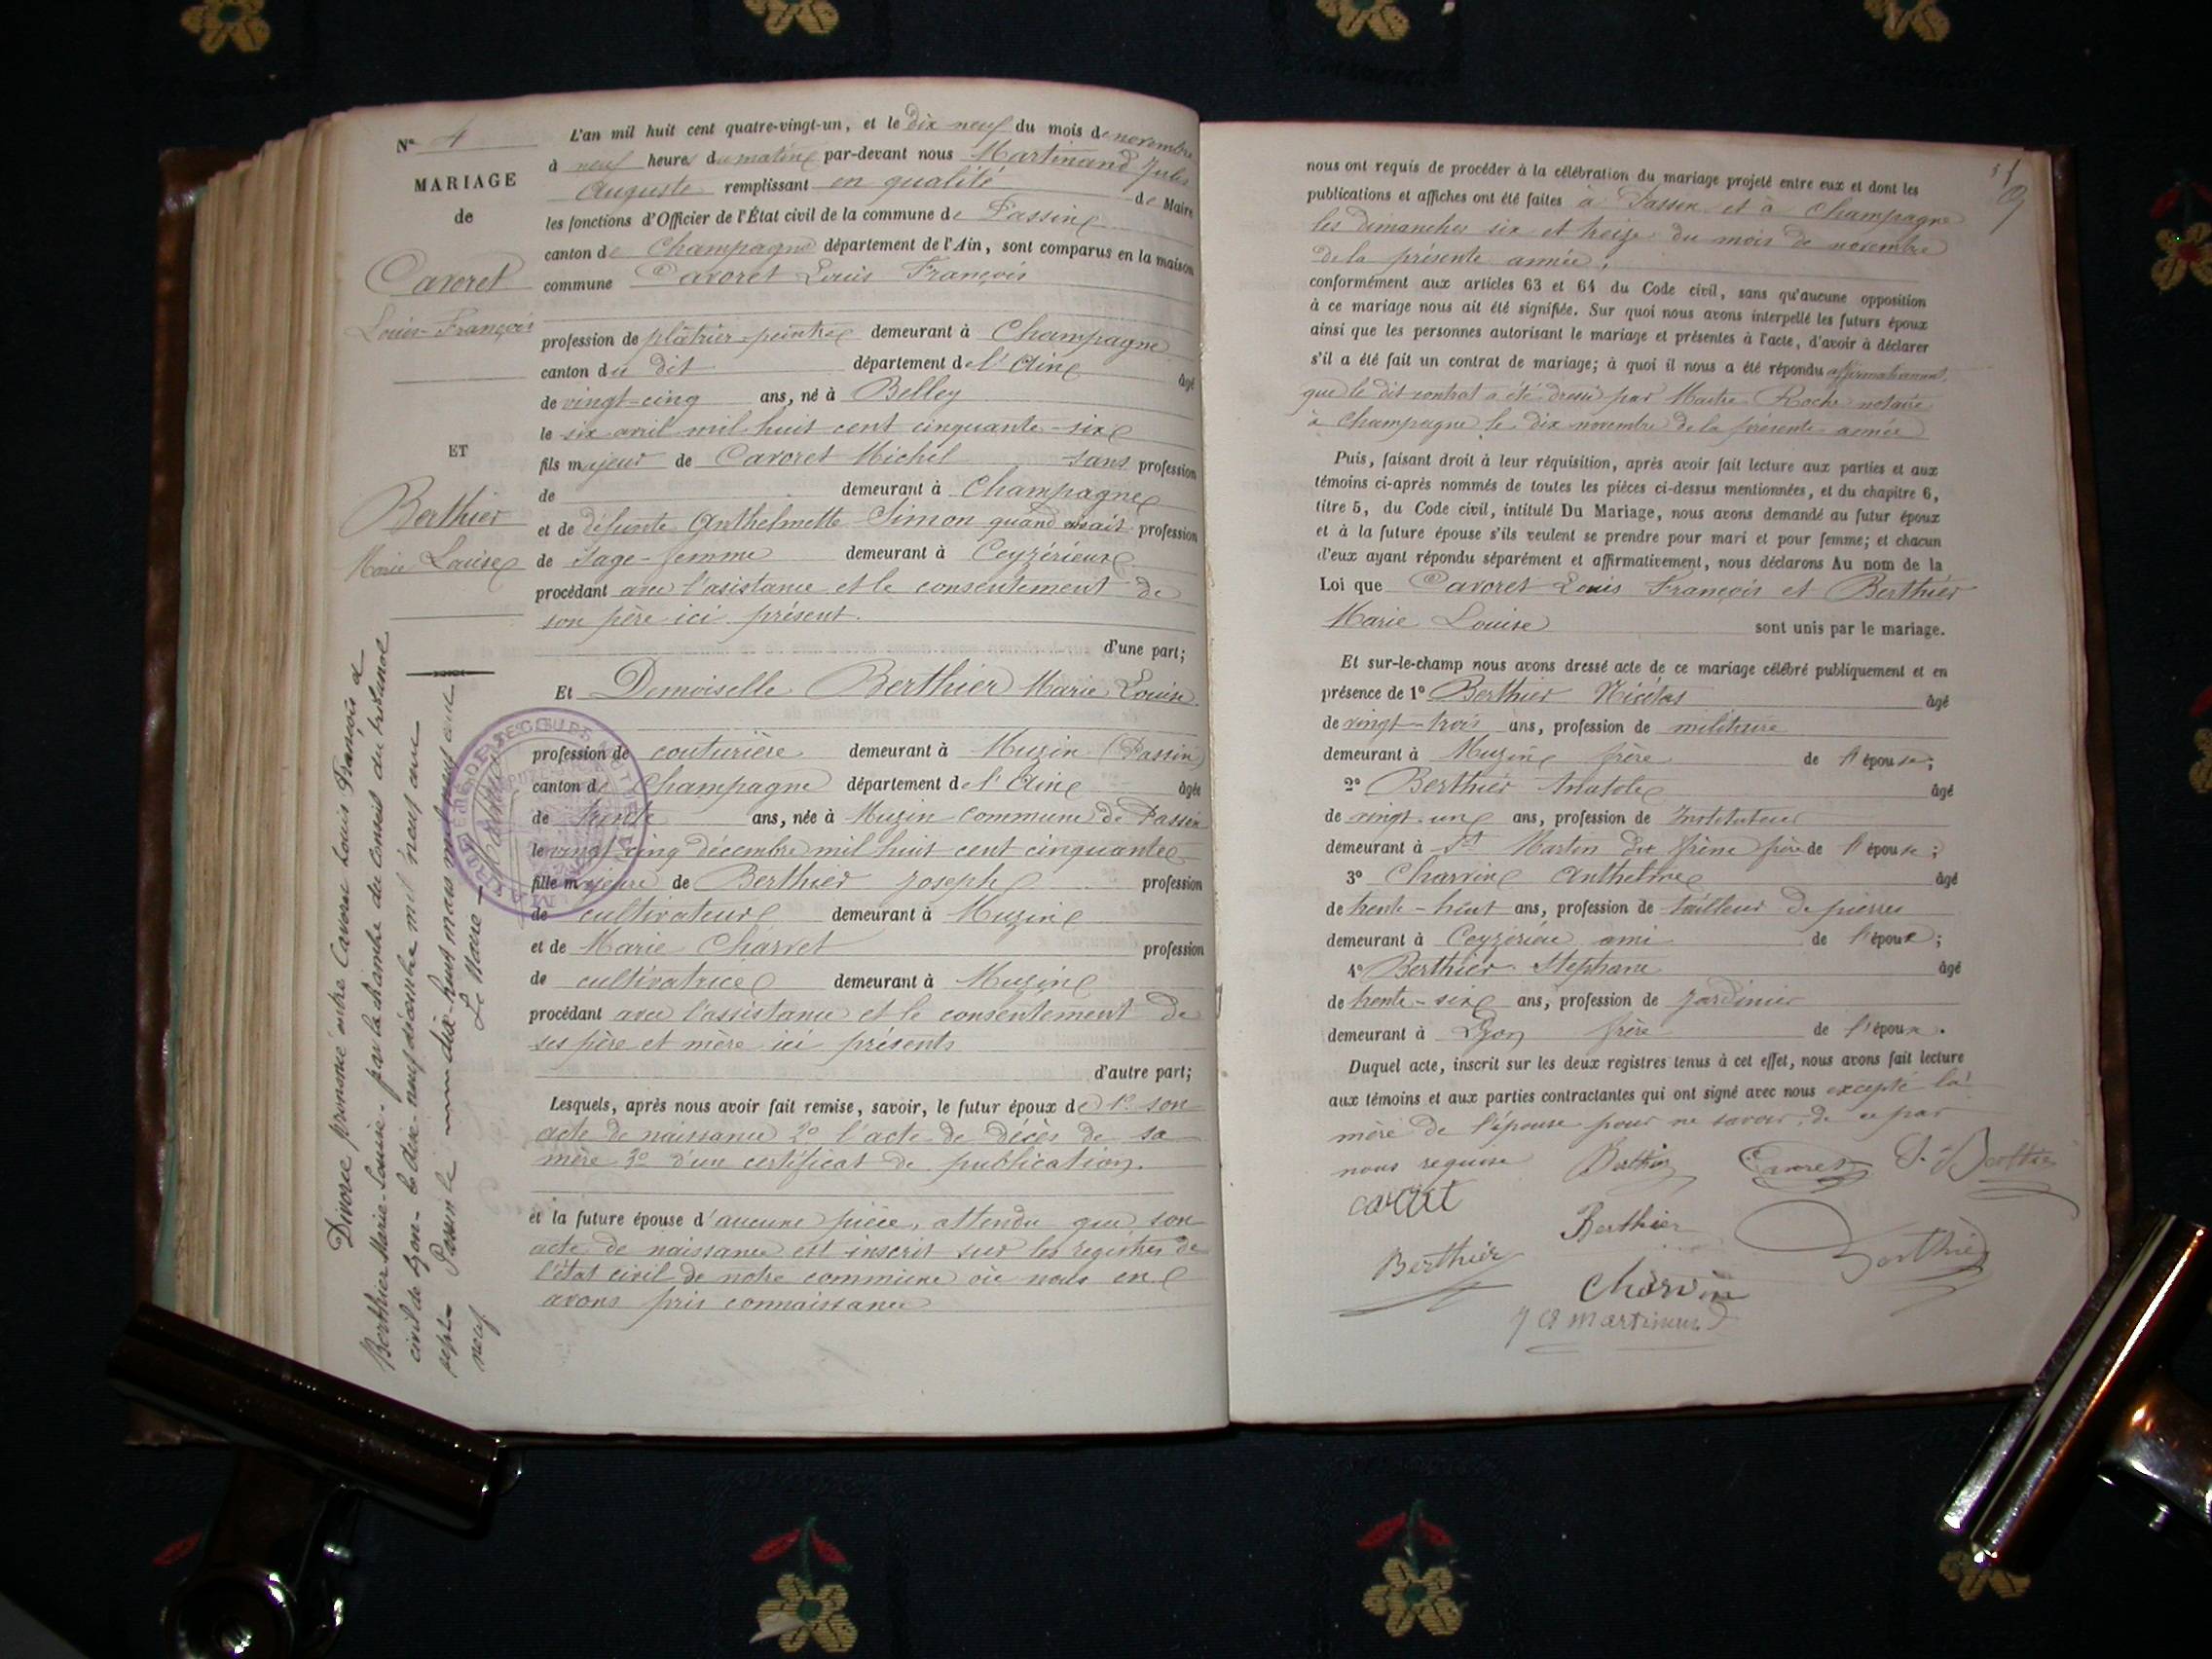 N° 4
MARIAGE
de
Cavoret
Louis-François
ET
Berthier
Marie Louise
Divorce prononcé entre Cavoret Louis François &
Berthier Marie-Louise, par la chambre du conseil du tribunal
civil de Lyon - le dix-neuf décembre mil neuf cent
sept - Passin le dix-huit mars mil neuf cent
neuf Le Maire -
L'an mil huit cent quatre-vingt-un, et le dix neuf du mois de novembre
à neuf heures du matin par-devant nous Martinand Jules
Auguste remplissant en qualité de Maire
les fonctions d'Officier de l'État civil de la commune de Passin
canton de Champagne département de l'Ain, sont comparus en la maison
commune Cavoret Louis François
profession de plâtrier-peintre demeurant à Champagne
canton du dit département de l'Ain âgé
de vingt-cinq ans, né à Belley
le six avril mil huit cent cinquante-six
fils majeur de Cavoret Michel sans profession
de demeurant à Champagne
et de défunte Anthelmette Simon quand vivait profession
de sage-femme demeurant à Ceyzérieux
procédant avec l'asistance et le consentement de
son père ici présent.
d'une part;
Et Demoiselle Berthier Marie Louise
profession de couturière demeurant à Muzin (Passin)
canton de Champagne département de l'Ain âgée
de trente ans, née à Muzin commune de Passin
le vingt cinq décembre mil huit cent cinquante
fille majeure de Berthier Joseph profession
de cultivateur demeurant à Muzin
et de Marie Charvet profession
de cultivatrice demeurant à Muzin
procédant avec l'assistance et le consentement de
ses père et mère ici présents
d'autre part;
Lesquels, après nous avoir fait remise, savoir, le futur époux de 1° son
acte de naissance 2° l'acte de décès de sa
mère 3° d'un certificat de publication.
et la future épouse d'aucune pièce, attendu que son
acte de naissance est inscrit sur les registres de
l'état civil de notre commune où nous en
avons pris connaissance
51
nous ont requis de procéder à la célébration du mariage projeté entre eux et dont les
publications et affiches ont été faites à Passin et à Champagne
les dimanches six et treize du mois de novembre
de la présente année,
conformément aux articles 63 et 64 du Code civil, sans qu'aucune opposition
à ce mariage nous ait été signifiée. Sur quoi nous avons interpellé les futurs époux
ainsi que les personnes autorisant le mariage et présentes à l'acte, d'avoir à déclarer
s'il a été fait un contrat de mariage; à quoi il nous a été répondu affirmativement,
que le dit contrat a été dressé par Maitre Roche notaire
à Champagne le dix novembre de la présente année
Puis, faisant droit à leur réquisition, après avoir fait lecture aux parties et aux
témoins ci-après nommés de toutes les pièces ci-dessus mentionnées, et du chapitre 6,
titre 5, du Code civil, intitulé Du Mariage, nous avons demandé au futur époux
et à la future épouse s'ils veulent se prendre pour mari et pour femme; et chacun
d'eux ayant répondu séparément et affirmativement, nous déclarons Au nom de la
Loi que Cavoret Louis François et Berthier
Marie Louise sont unis par le mariage.
Et sur-le-champ nous avons dressé acte de ce mariage célébré publiquement et en
présence de 1° Berthier Nicétas âgé
de vingt-trois ans, profession de militaire
demeurant à Muzin frère de l'épouse;
2° Berthier Anatole âgé
de vingt-un ans, profession de Instituteur
demeurant à St Martin du frêne frère de l'épouse;
3° Charvin Anthelme âgé
de trente-huit ans, profession de tailleur de pierres
demeurant à Ceyzérieu ami de l'époux;
4° Berthier Stephane âgé
de trente-six ans, profession de Jardinier
demeurant à Lyon frère de l'épouse.
Duquel acte, inscrit sur les deux registres tenus à cet effet, nous avons fait lecture
aux témoins et aux parties contractantes qui ont signé avec nous excepté la
mère de l'épouse pour ne savoir, de ce par
nous requise Berthier Cavoret S. Berthier
cavoret
Berthier Berthier Berthier
Charvin
J A Martinand